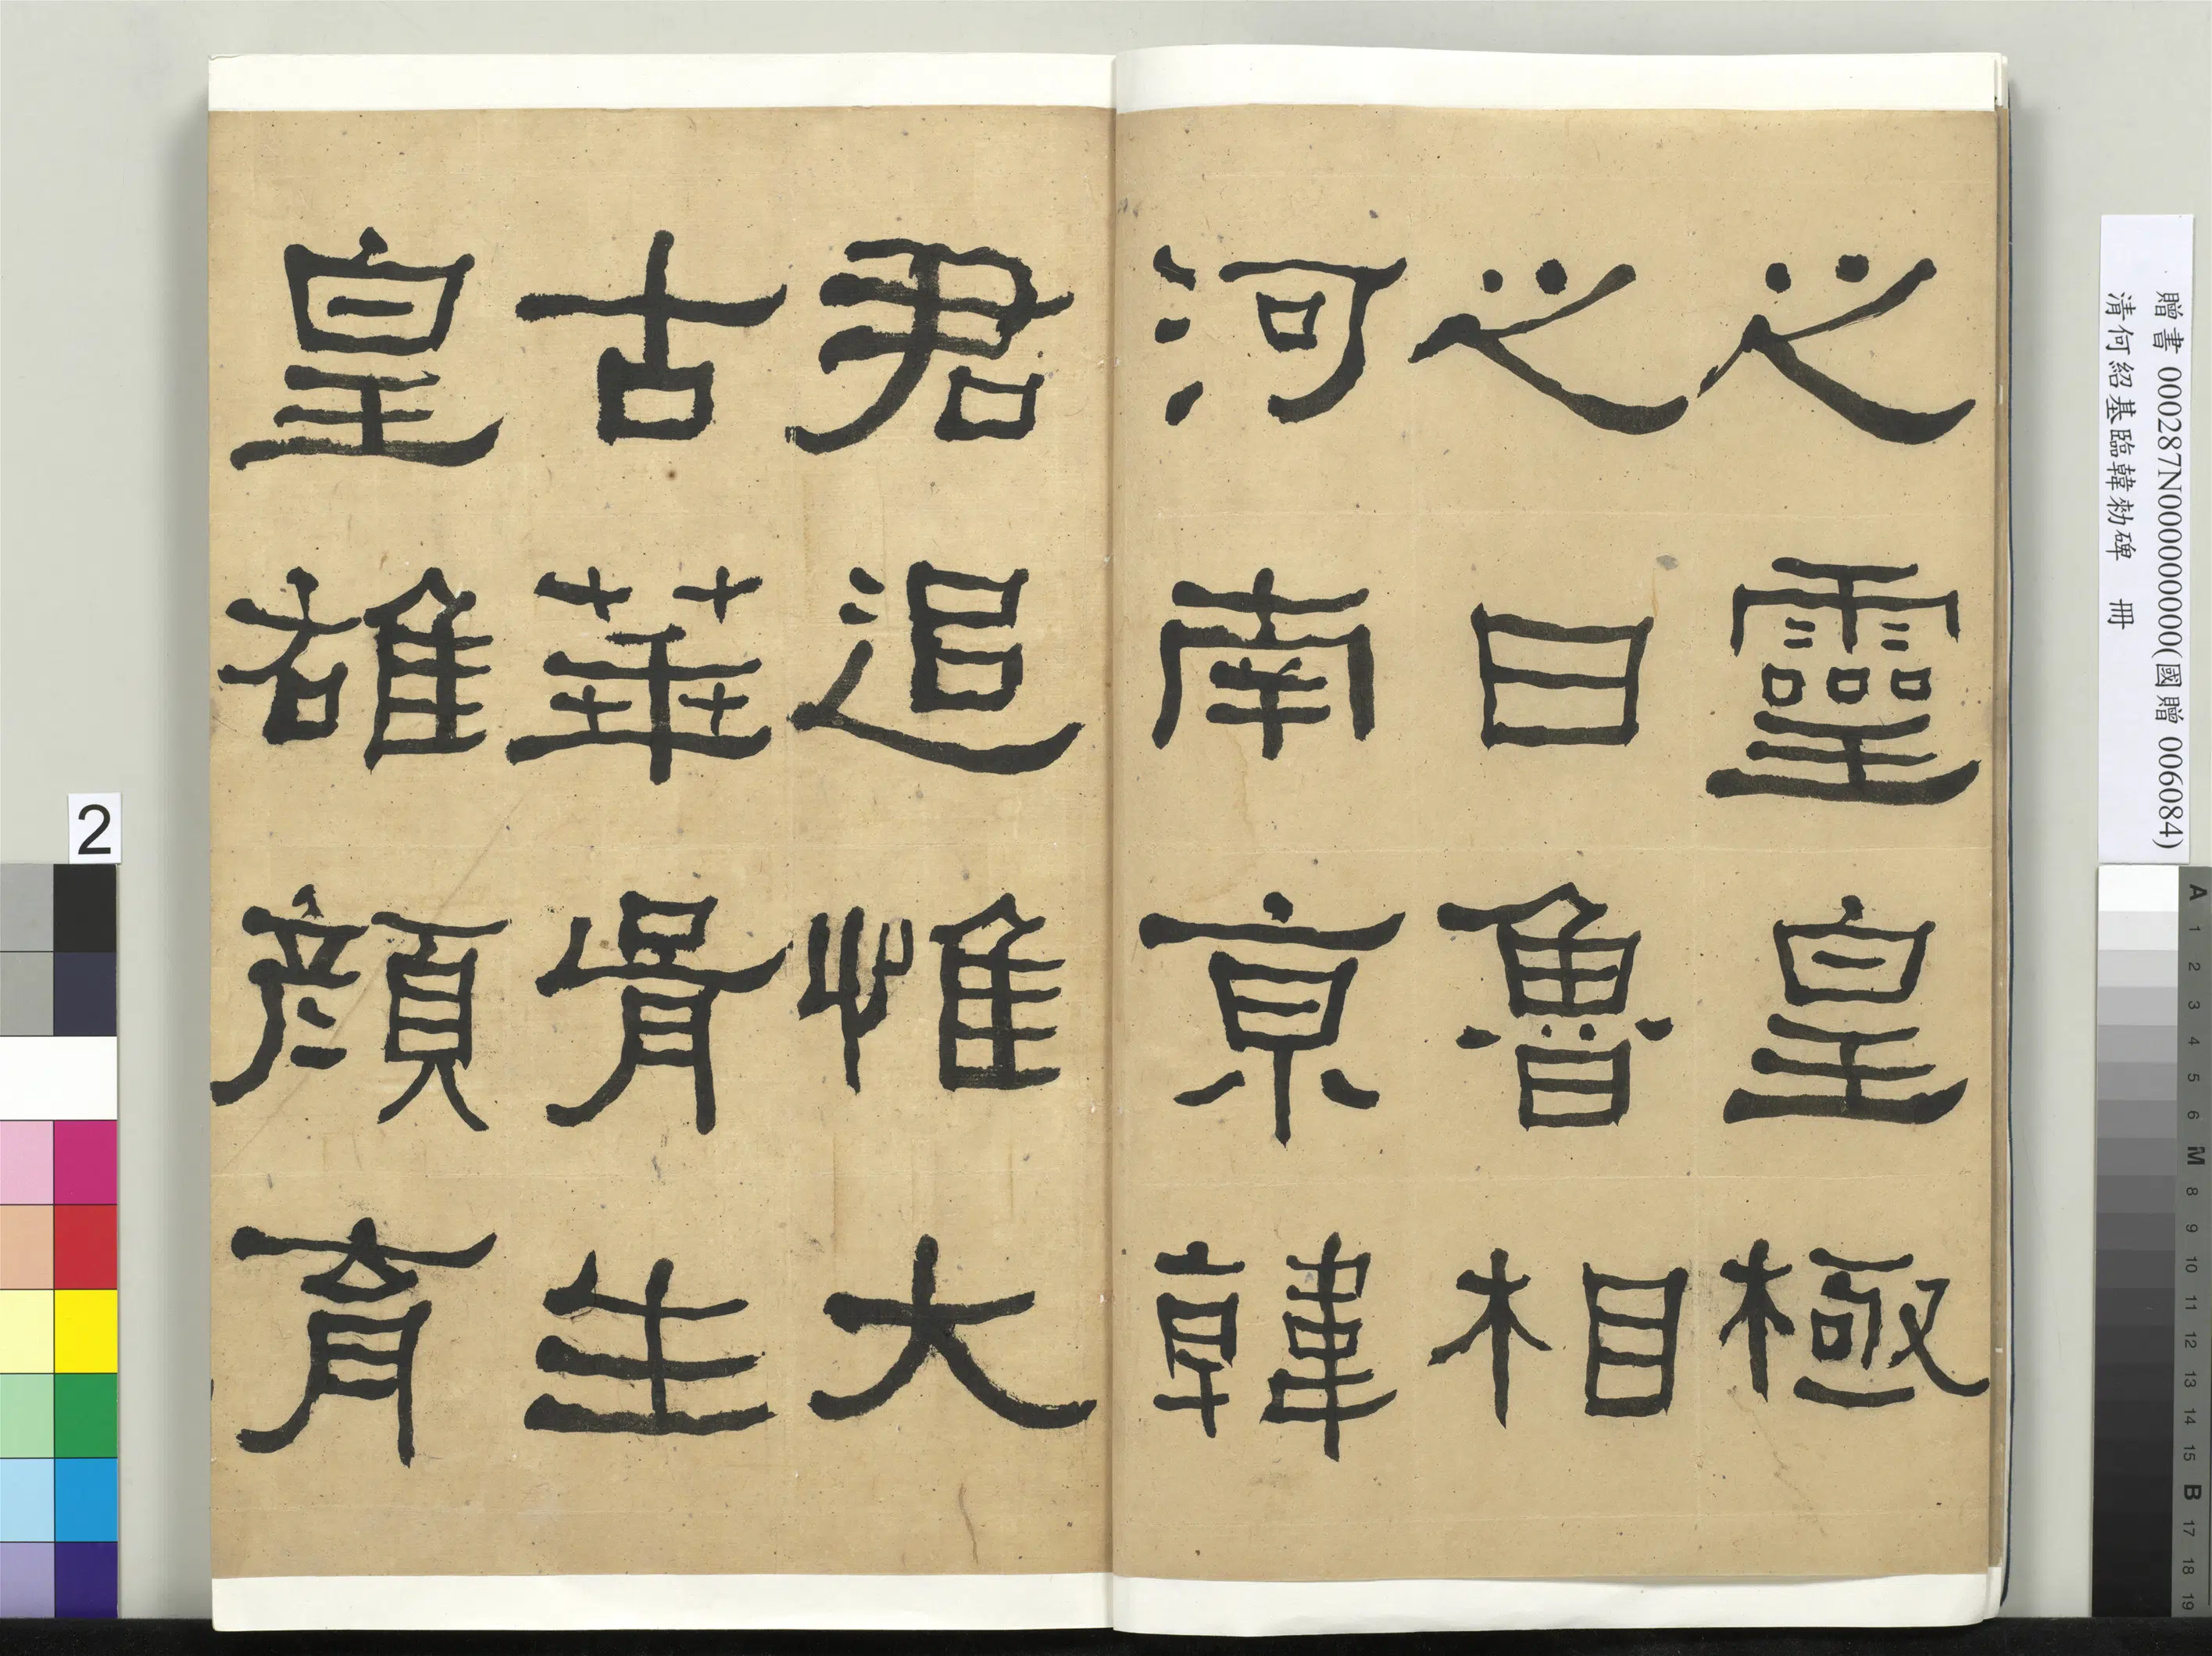 之靈皇極
之日魯相
河南京韓
君追惟大
古華胥生
皇雄顏育
贈書 000287N000000000(國贈 006084)
清何紹基臨韓勑碑 冊
2
A 1 2 3 4 5 6 M 8 9 10 11 12 13 14 15 B 17 18 19